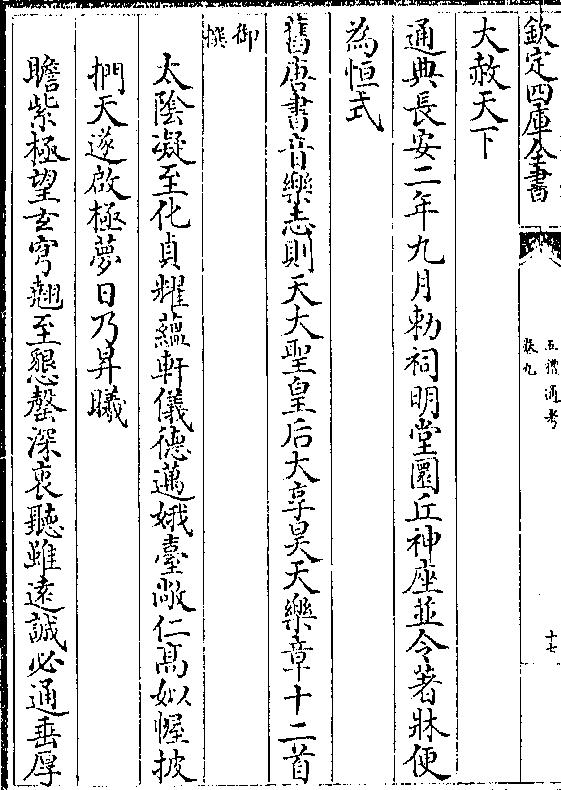 欽定四庫全書
五禮通考
卷九
十七
大赦天下
通典長安二年九月勅祠明堂圜丘神座並令著牀便
為恒式
舊唐書音樂志則天大聖皇后大享昊天樂章十二首
御撰
太陰凝至化貞耀蘊軒儀德邁娥臺敞仁髙姒幄披
捫天遂啟極夢日乃昇曦
瞻紫極望玄穹翹至懇罄深衷聽雖遠誠必通垂厚